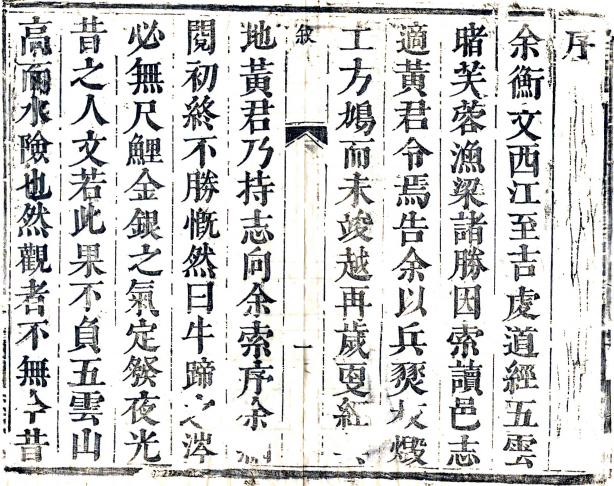 序
余衡文西江至吉虔道經五雲
睹芙蓉漁梁諸勝因索讀邑志
適黃君令焉告余以兵燹友燬
工方鳩而未竣越再歲更紅
敘
一
地黃君乃持志向余索序余
閱初終不勝慨然曰牛蹄之涔
必無尺鯉金銀之氣定發夜光
昔之人文若此果不負五雲山
高而水險也然觀者不無今昔